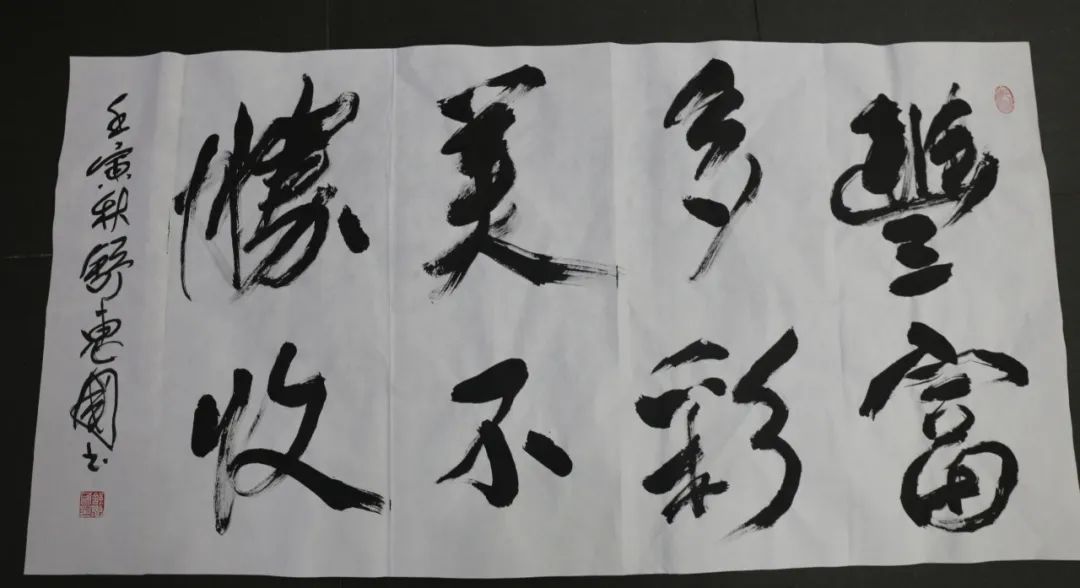 豐富
多彩
美不
勝收
壬寅秋舒惠國书